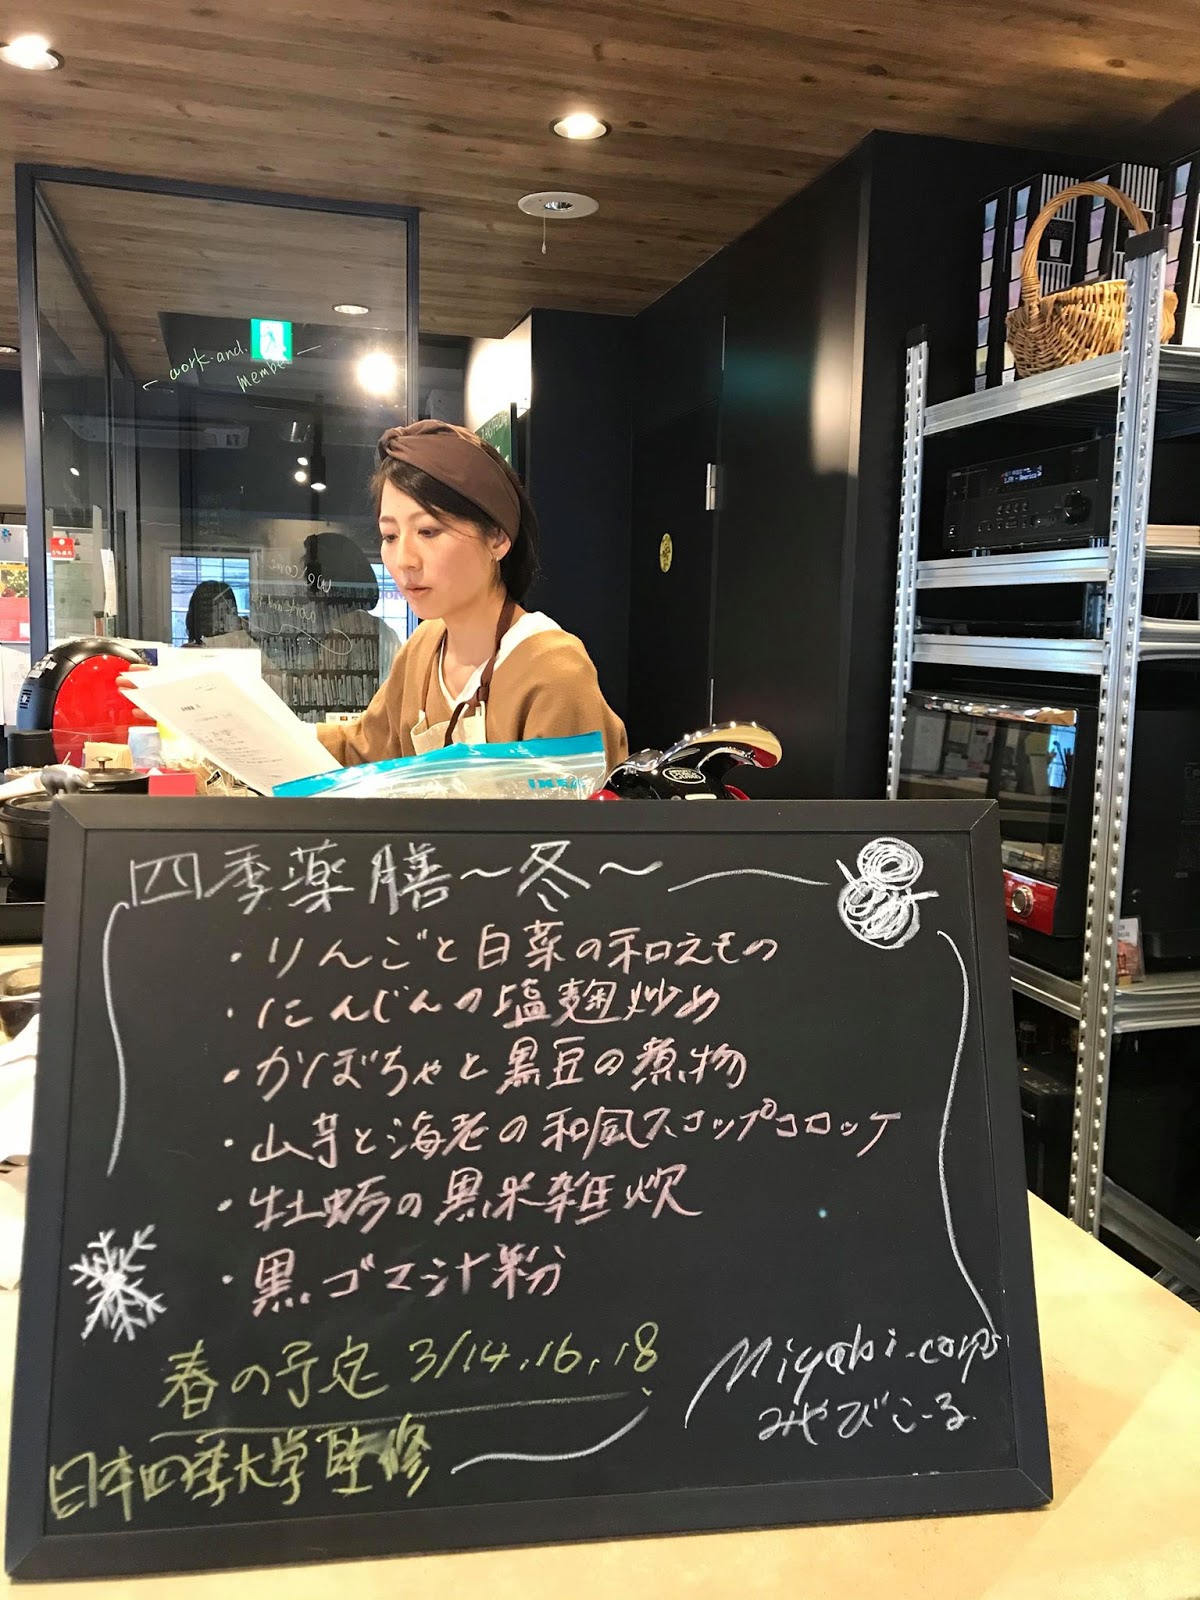 work・and.
member
welcome
IKEA
四季薬膳〜冬〜
・りんごと白菜の和えもの
・にんじんの塩麹炒め
・かぼちゃと黒豆の煮物
・山芋と海老の和風スコップコロッケ
・牡蛎の黒米雑炊
・黒ゴマ汁粉
春の予定 3/14.16.18
日本四季大学監修
Miyabi-corps
みやびこーる